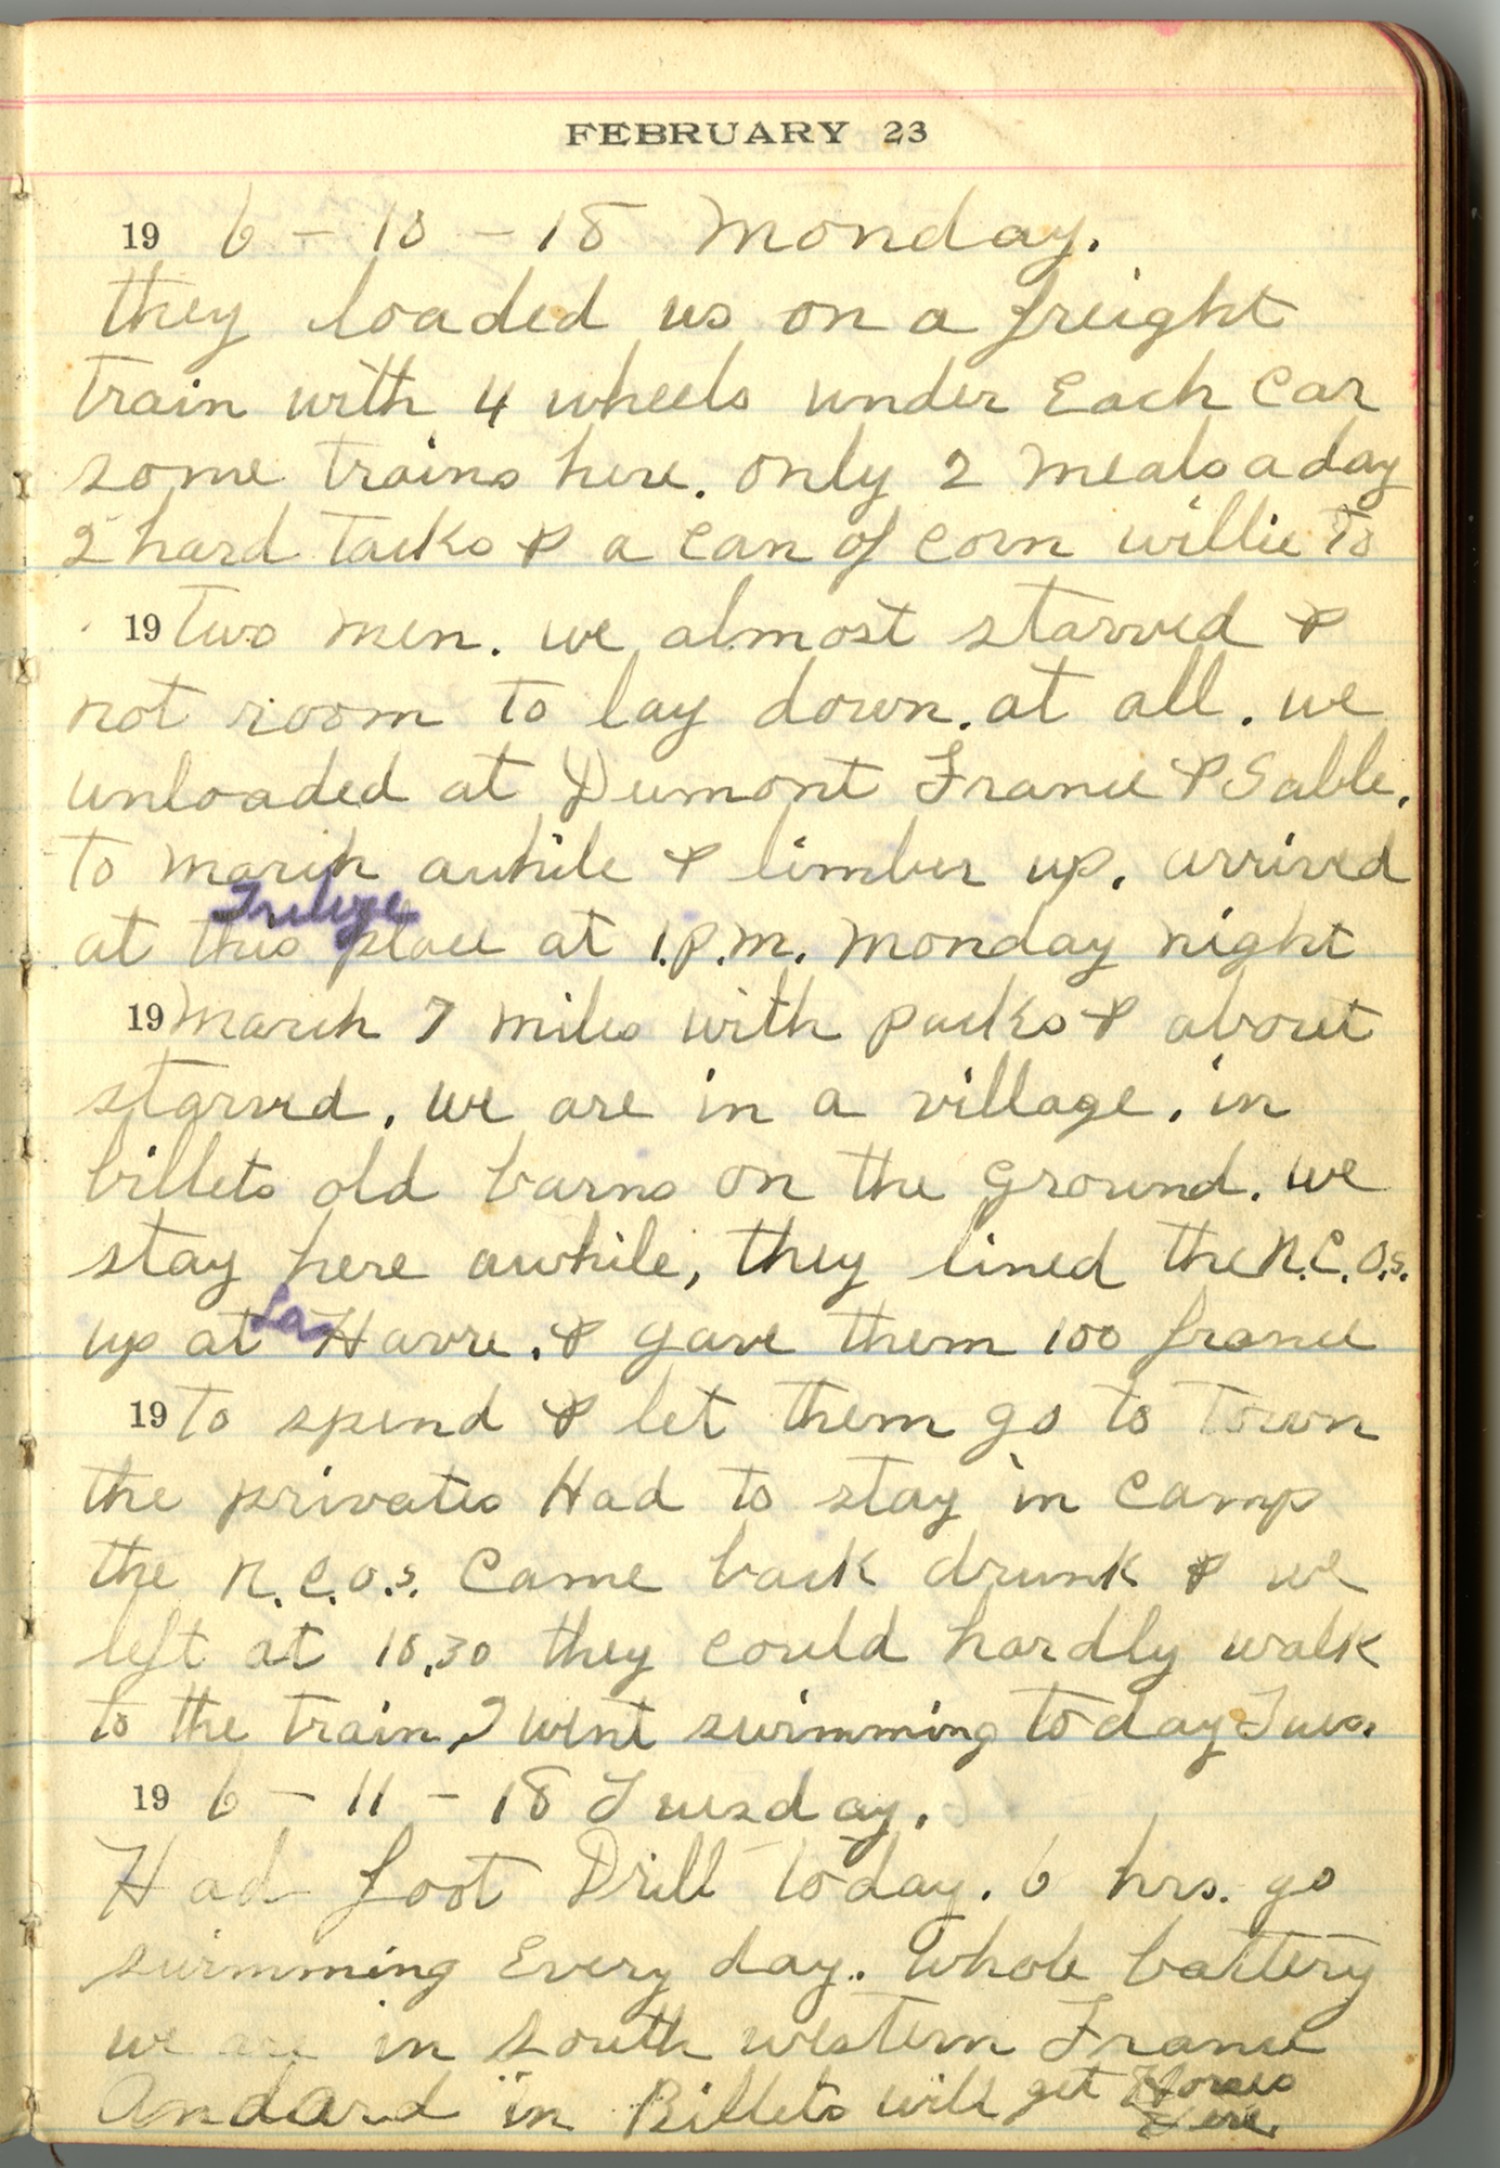 FEBRUARY 23
19 6 - 10 - 18 Monday.
they loaded us on a freight
train with 4 wheels under Each Car
some trains here. only 2 meals a day
2 hard tacks & a can of corn willie to
19 two men. we almost starved &
not room to lay down. at all. we
unloaded at Dumont France & Sable.
to march awhile & limber up. arrived
at this place at 1.P.M. Monday night
19 March 7 miles with packs & about
starved. we are in a village. in
billets old barns on the ground. we
stay here awhile, they lined the N.C.O.s.
up at La Havre. & gave them 100 france
19 to spend & let them go to Town
the privates Had to stay in Camp
the N.C.O.s. Came back drunk & we
left at 10.30 they could hardly walk
to the train, I went swimming to day Tues.
19 6 - 11 - 18 Tuesday.
Had foot Drill today. 6 hrs. go
swimming Every day.. whole battery
we are in south western France
Andard in Billets will get Horses
Here.